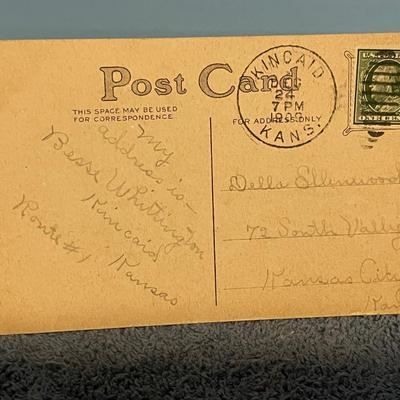 Post Card
THIS SPACE MAY BE USED
FOR CORRESPONDENCE
FOR ADDRESS ONLY
KINCAID
24
7 PM
1909
KANS.
My
address is-
Besse Whittington
Kincaid
Kansas
Route #1
Della Ellenwood
72 South Valley
Kansas City